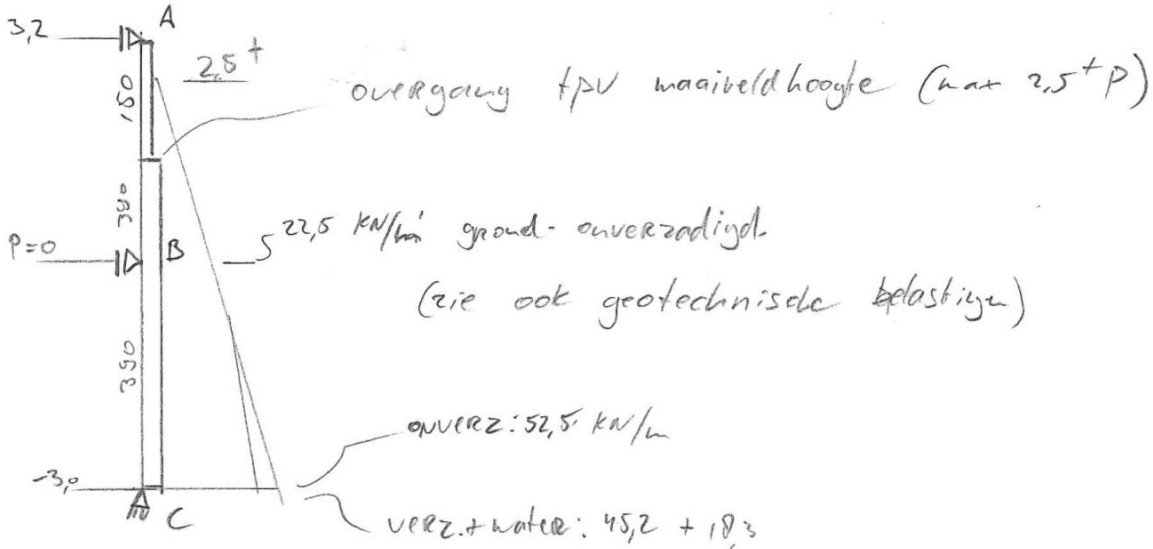 3,2
A
2,5 +
150
overgang tpv maaiveldhoogte (max 2,5+ P)
390
P=0
B
22,5 KN/m' grond- onverzadigd.
(zie ook geotechnische belastingen)
390
onverz: 52,5 KN/m
-3,0
C
verz.+water: 45,2 + 18,3